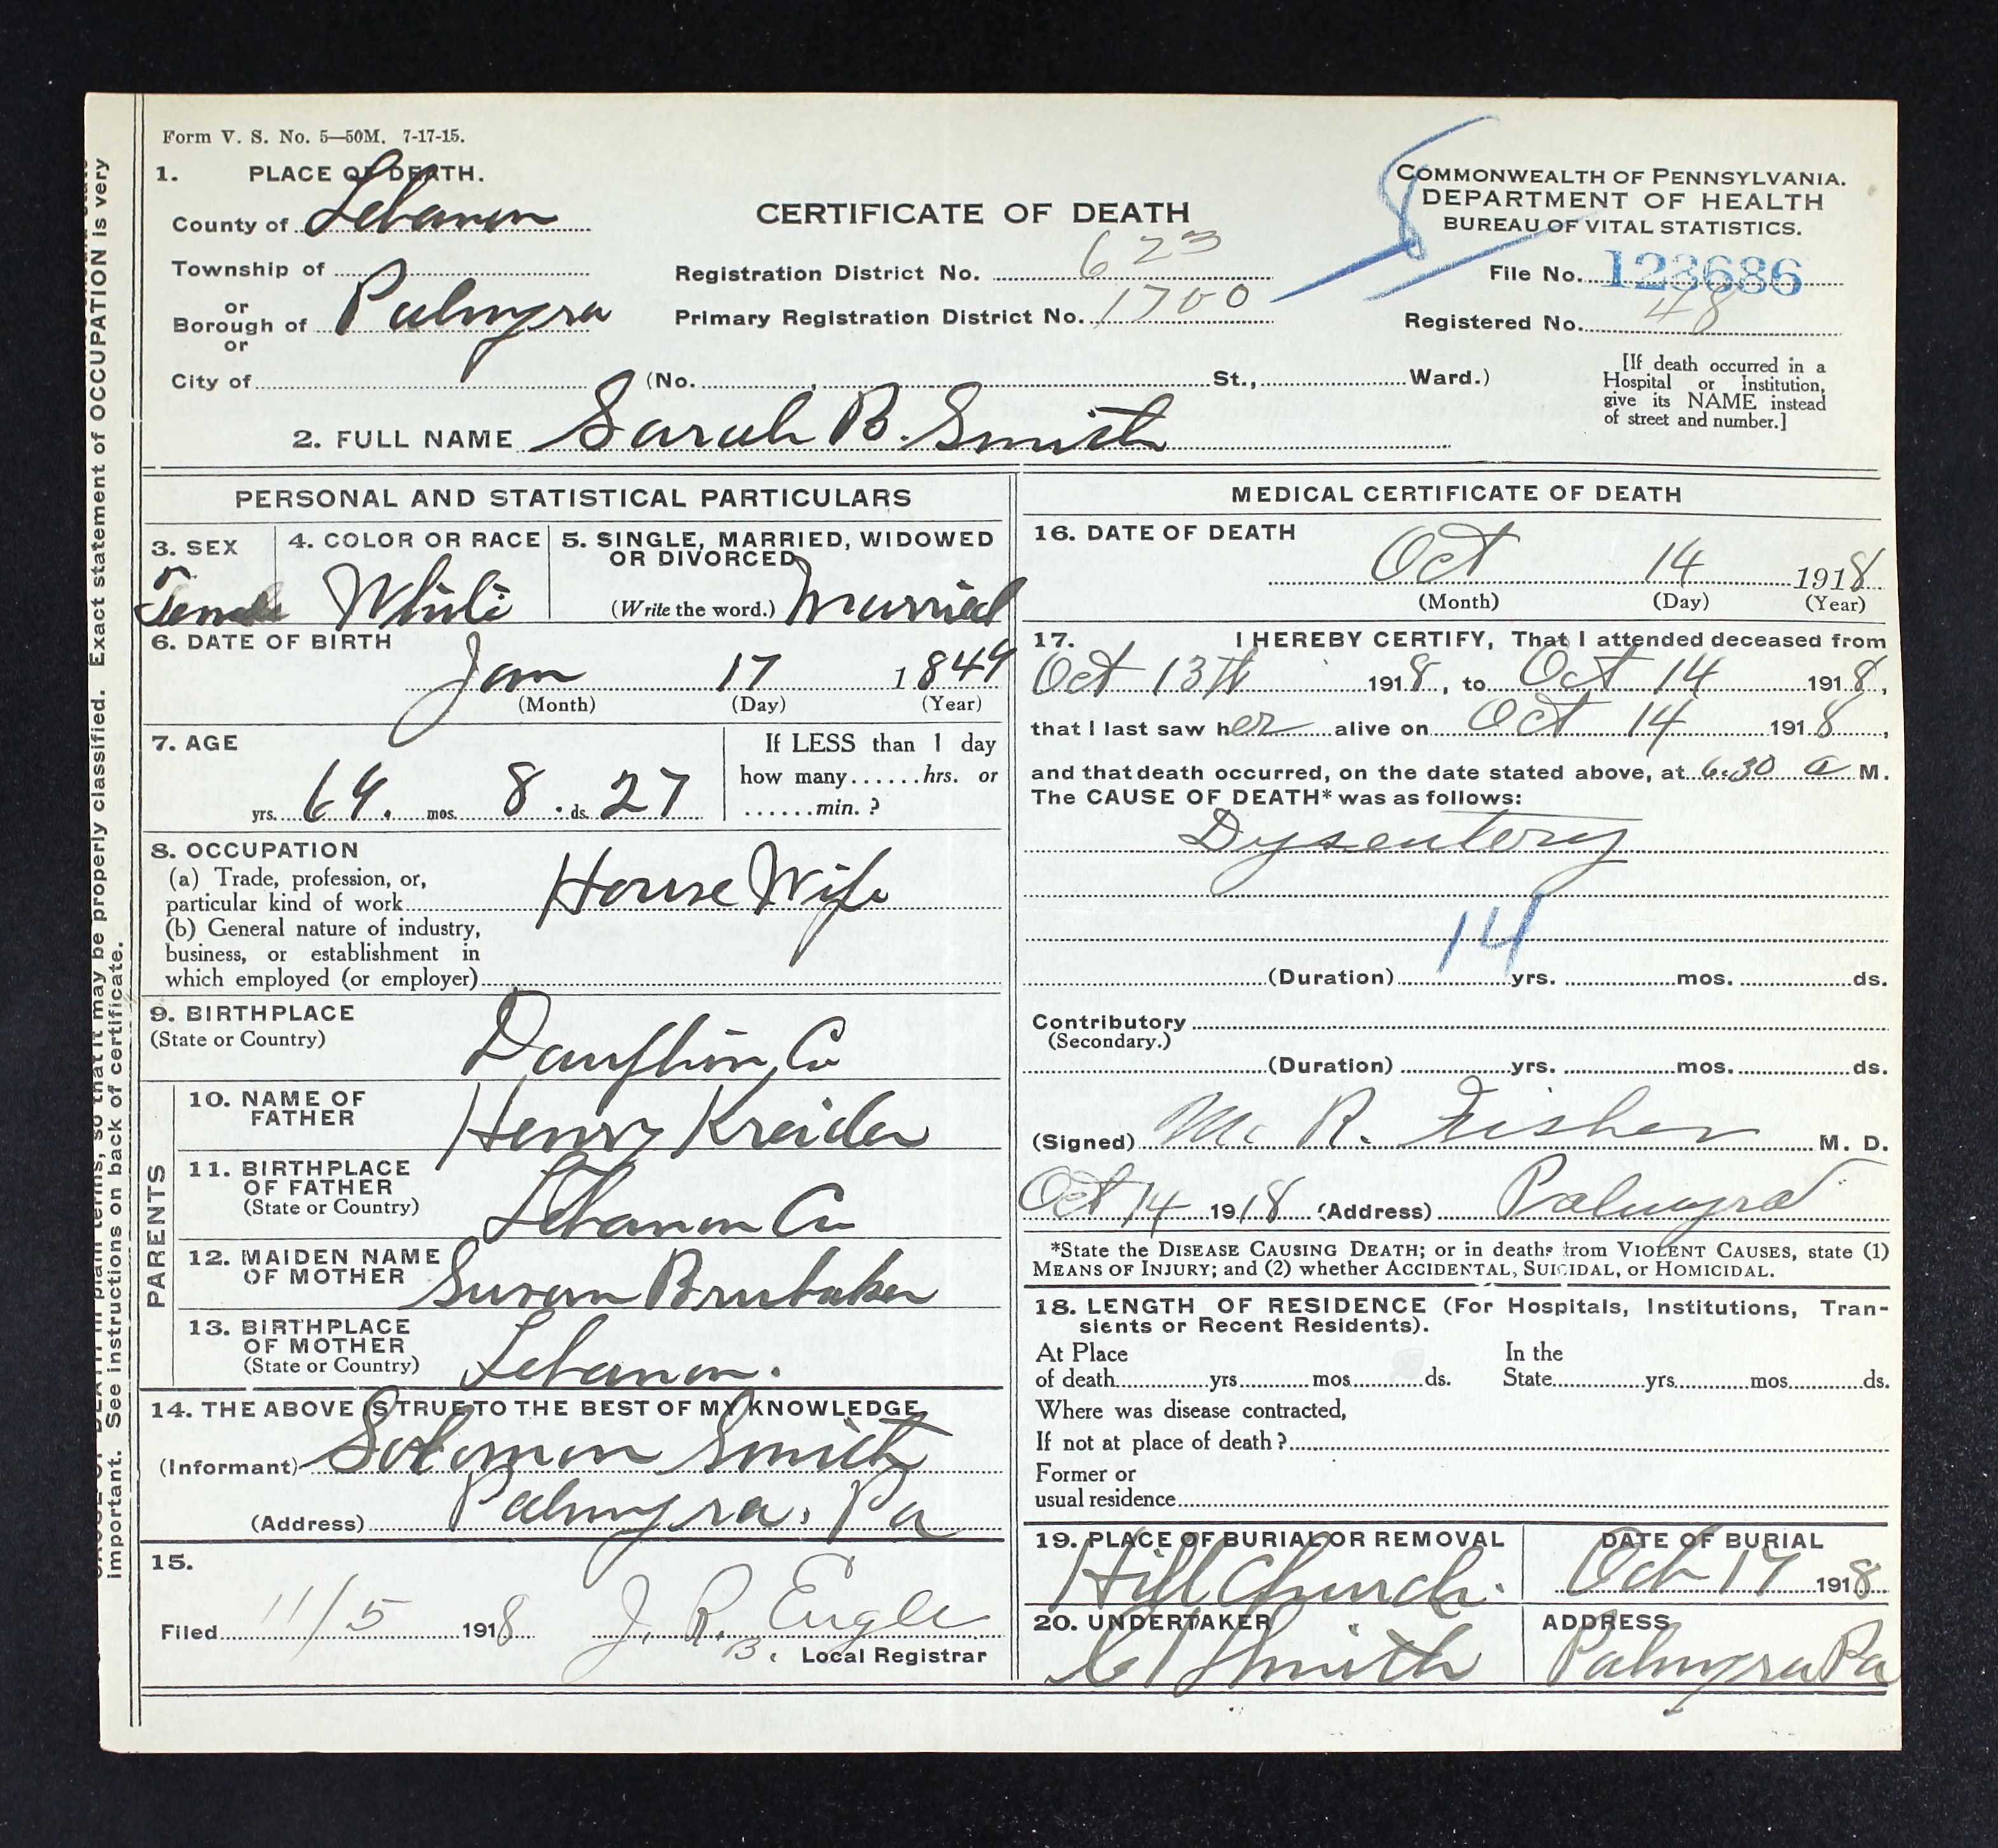 Form V. S. No. 5—50M. 7-17-15.
1. PLACE OF DEATH.
County of Lebanon
Township of
or
Borough of Palmyra
or
City of
CERTIFICATE OF DEATH
Registration District No. 623
Primary Registration District No. 1700
(No. , St., Ward.)
COMMONWEALTH OF PENNSYLVANIA.
DEPARTMENT OF HEALTH
BUREAU OF VITAL STATISTICS.
8
File No. 123686
Registered No. 48
[If death occurred in a
Hospital or Institution,
give its NAME instead
of street and number.]
2. FULL NAME Sarah B. Smith
PERSONAL AND STATISTICAL PARTICULARS
3. SEX
Female
4. COLOR OR RACE
White
5. SINGLE, MARRIED, WIDOWED
OR DIVORCED
(Write the word.) Married
6. DATE OF BIRTH
Jan 17 1849
(Month) (Day) (Year)
7. AGE
yrs. 69. mos. 8. ds. 27
If LESS than 1 day
how many......hrs. or
......min. ?
8. OCCUPATION
(a) Trade, profession, or,
particular kind of work House Wife
(b) General nature of industry,
business, or establishment in
which employed (or employer)
9. BIRTHPLACE
(State or Country)
Dauphin, Co
PARENTS
10. NAME OF
FATHER
Henry Kreider
11. BIRTHPLACE
OF FATHER
(State or Country)
Lebanon Co
12. MAIDEN NAME
OF MOTHER
Susan Brubaker
13. BIRTHPLACE
OF MOTHER
(State or Country)
Lebanon.
14. THE ABOVE IS TRUE TO THE BEST OF MY KNOWLEDGE
(Informant) Solomon Smith
(Address) Palmyra, Pa
15.
Filed 11/5 1918 J. R. Engle
B. Local Registrar
MEDICAL CERTIFICATE OF DEATH
16. DATE OF DEATH
Oct 14 1918
(Month) (Day) (Year)
17. I HEREBY CERTIFY, That I attended deceased from
Oct 13th 1918, to Oct 14 1918,
that I last saw her alive on Oct 14 1918,
and that death occurred, on the date stated above, at 6:30 a M.
The CAUSE OF DEATH* was as follows:
Dysentery
14
(Duration) yrs. mos. ds.
Contributory
(Secondary.)
(Duration) yrs. mos. ds.
(Signed) M. R. Fisher M. D.
Oct 14 1918 (Address) Palmyra
*State the DISEASE CAUSING DEATH; or in deaths from VIOLENT CAUSES, state (1)
MEANS OF INJURY; and (2) whether ACCIDENTAL, SUICIDAL, or HOMICIDAL.
18. LENGTH OF RESIDENCE (For Hospitals, Institutions, Tran-
sients or Recent Residents).
At Place
of death yrs mos ds.
In the
State yrs. mos ds.
Where was disease contracted,
If not at place of death ?
Former or
usual residence
19. PLACE OF BURIAL OR REMOVAL
Hill Church.
DATE OF BURIAL
Oct 17 1918
20. UNDERTAKER
Smith
ADDRESS
Palmyra Pa
in plain terms, so that it may be properly classified. Exact statement of OCCUPATION is very
important. See instructions on back of certificate.